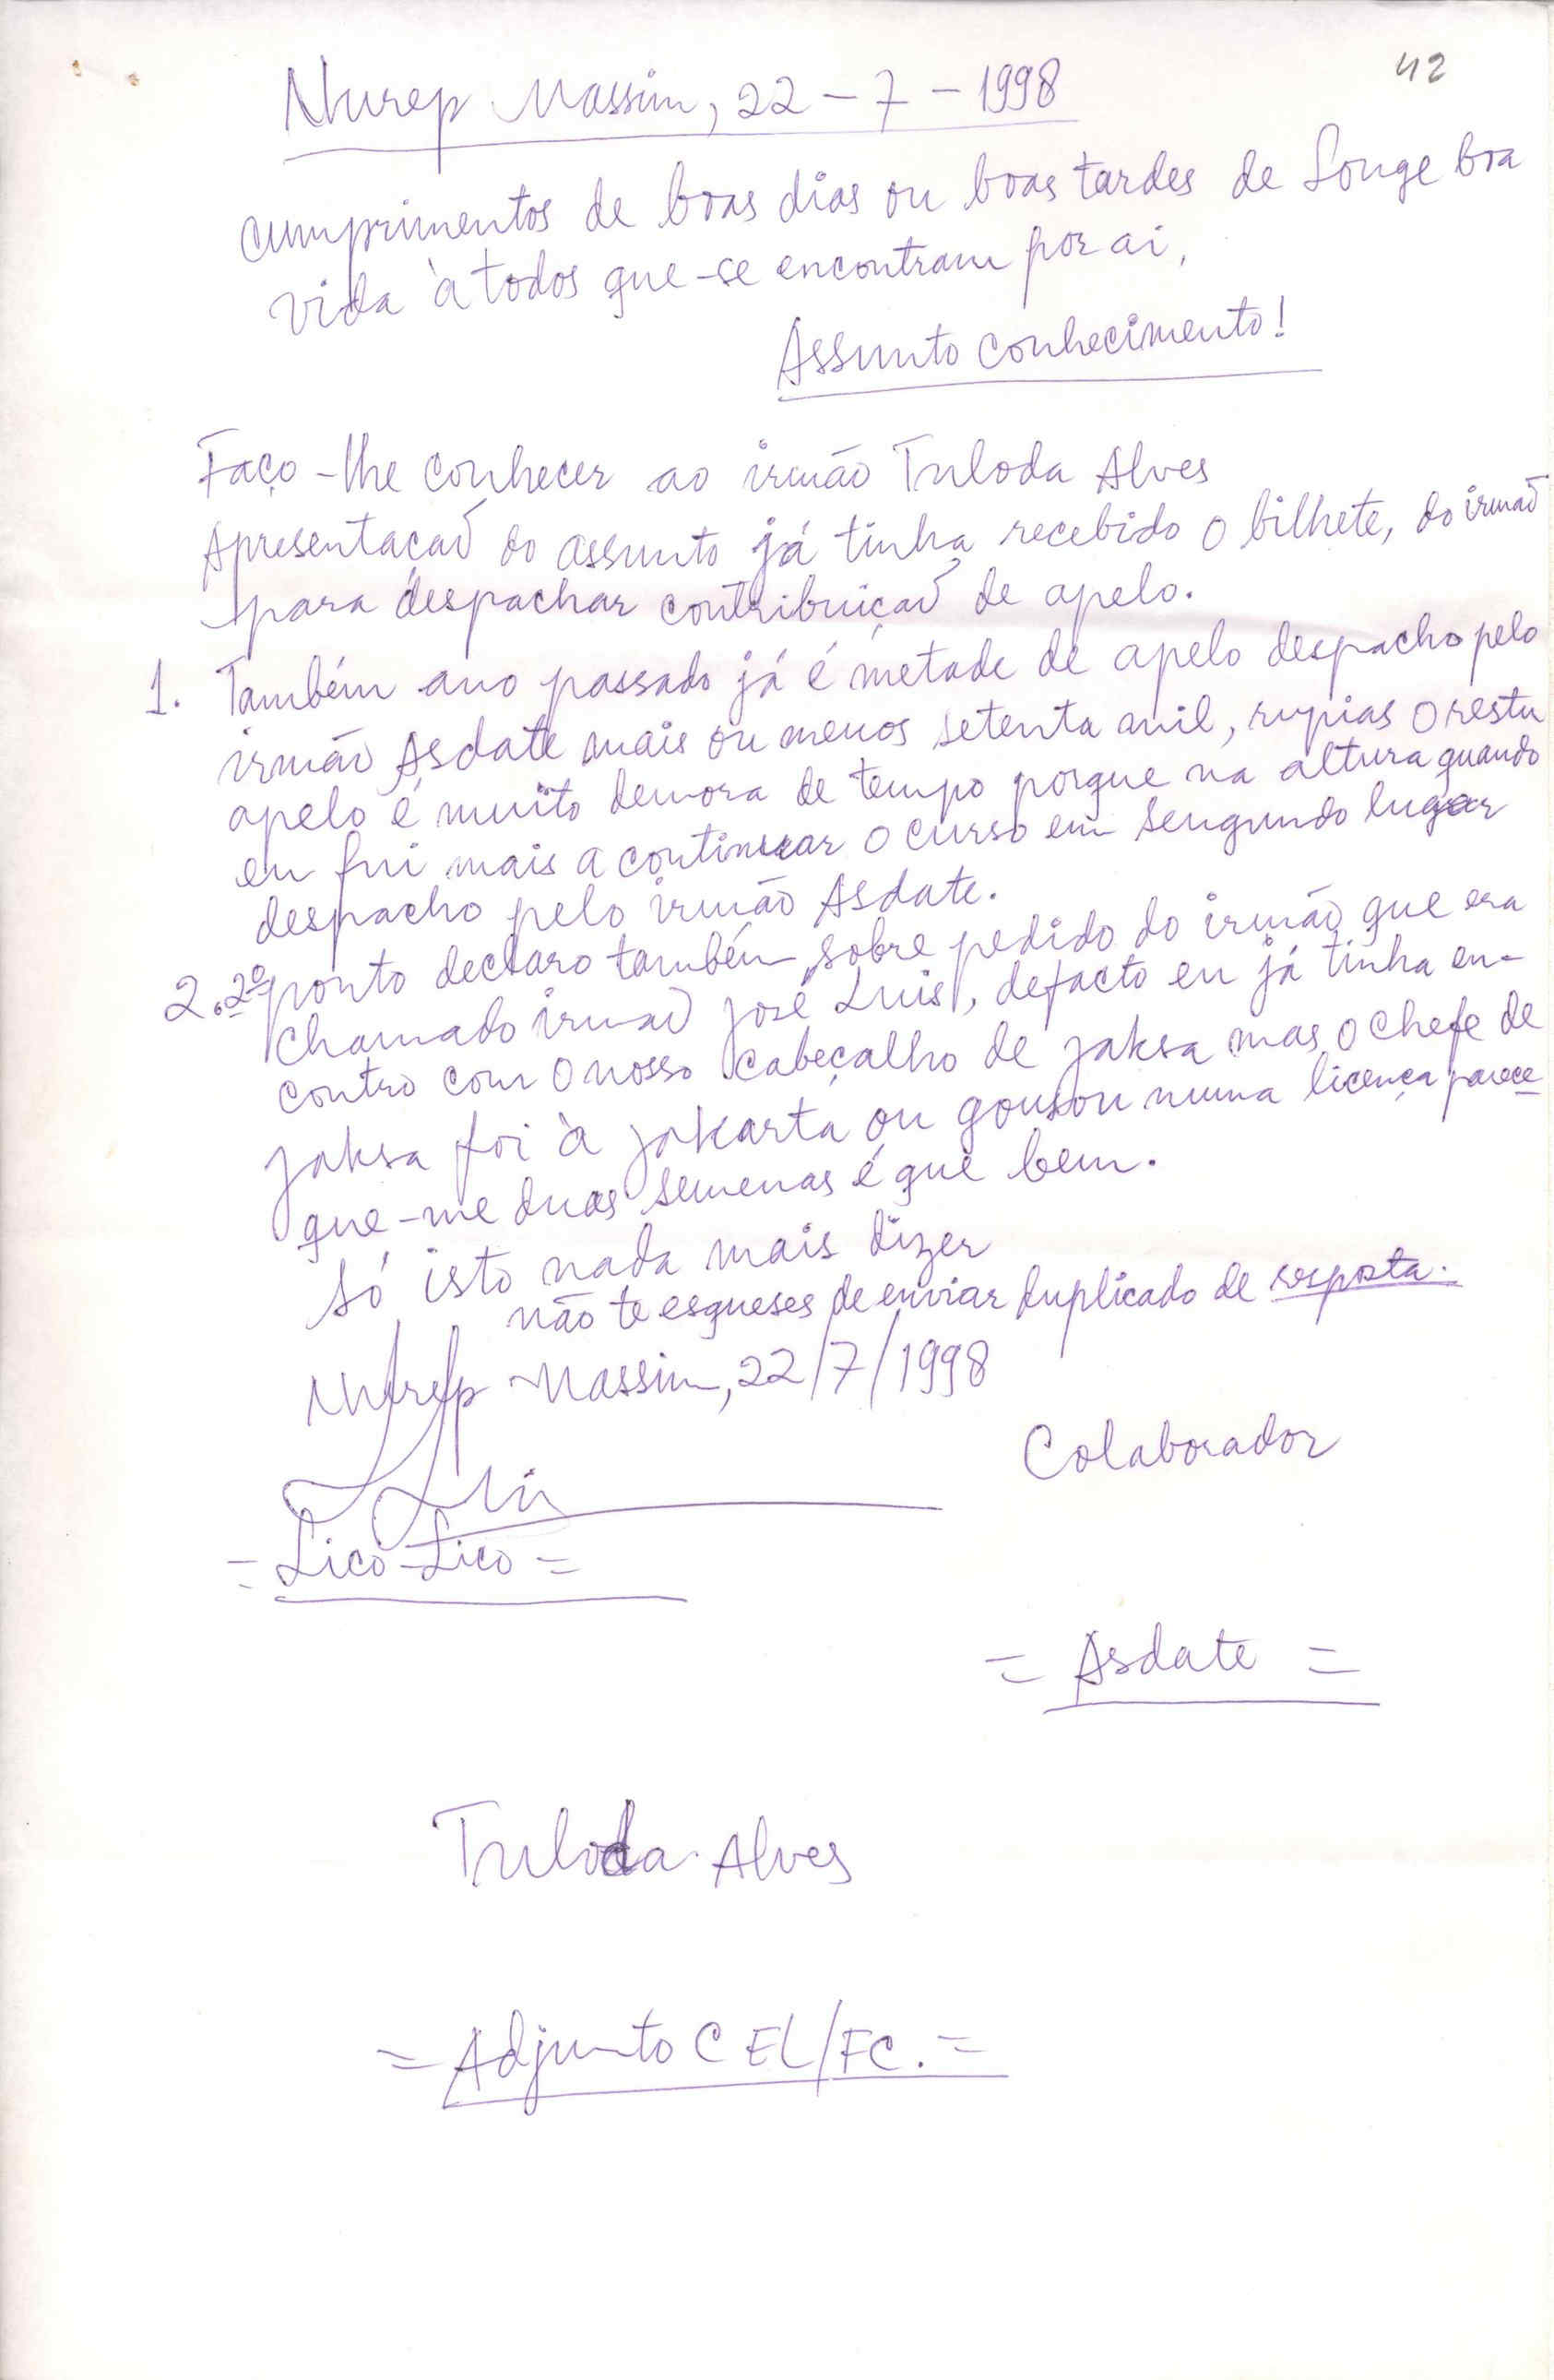 42
Nurep Massin, 22-7-1998
cumprimentos de boas dias ou boas tardes de Longe boa
vida à todos que-se encontram por ai,
Assunto conhecimento!
Faço-lhe conhecer ao irmão Tuloda Alves
Apresentaçaõ do assunto já tinha recebido o bilhete, do irmaõ
para despachar contribuiçaõ de apelo.
1. Também ano passado já é metade de apelo despacho pelo
irmão Asdate mais ou menos setenta mil, rupias o restu
apelo é muito demora de tempo porque na altura quando
eu fui mais a continuar o curso em seugundo lugar
despacho pelo irmão Asdate.
2. 2º ponto declaro também sobre pedido do irmão que era
chamado irmaõ José Luis, defacto eu já tinha en-
contro com o nosso cabeçalho de jaksa mas o chefe de
jaksa foi à jakarta ou gousou numa licença parece
que-me duas semenas é que bem.
só isto nada mais dizer
não te esqueses de enviar duplicado de resposta.
Nurep Massin, 22/7/1998
Colaborador
=Lico-Lico=
= Asdate =
Tuloda Alves
=Adjunto CEL/FC.=